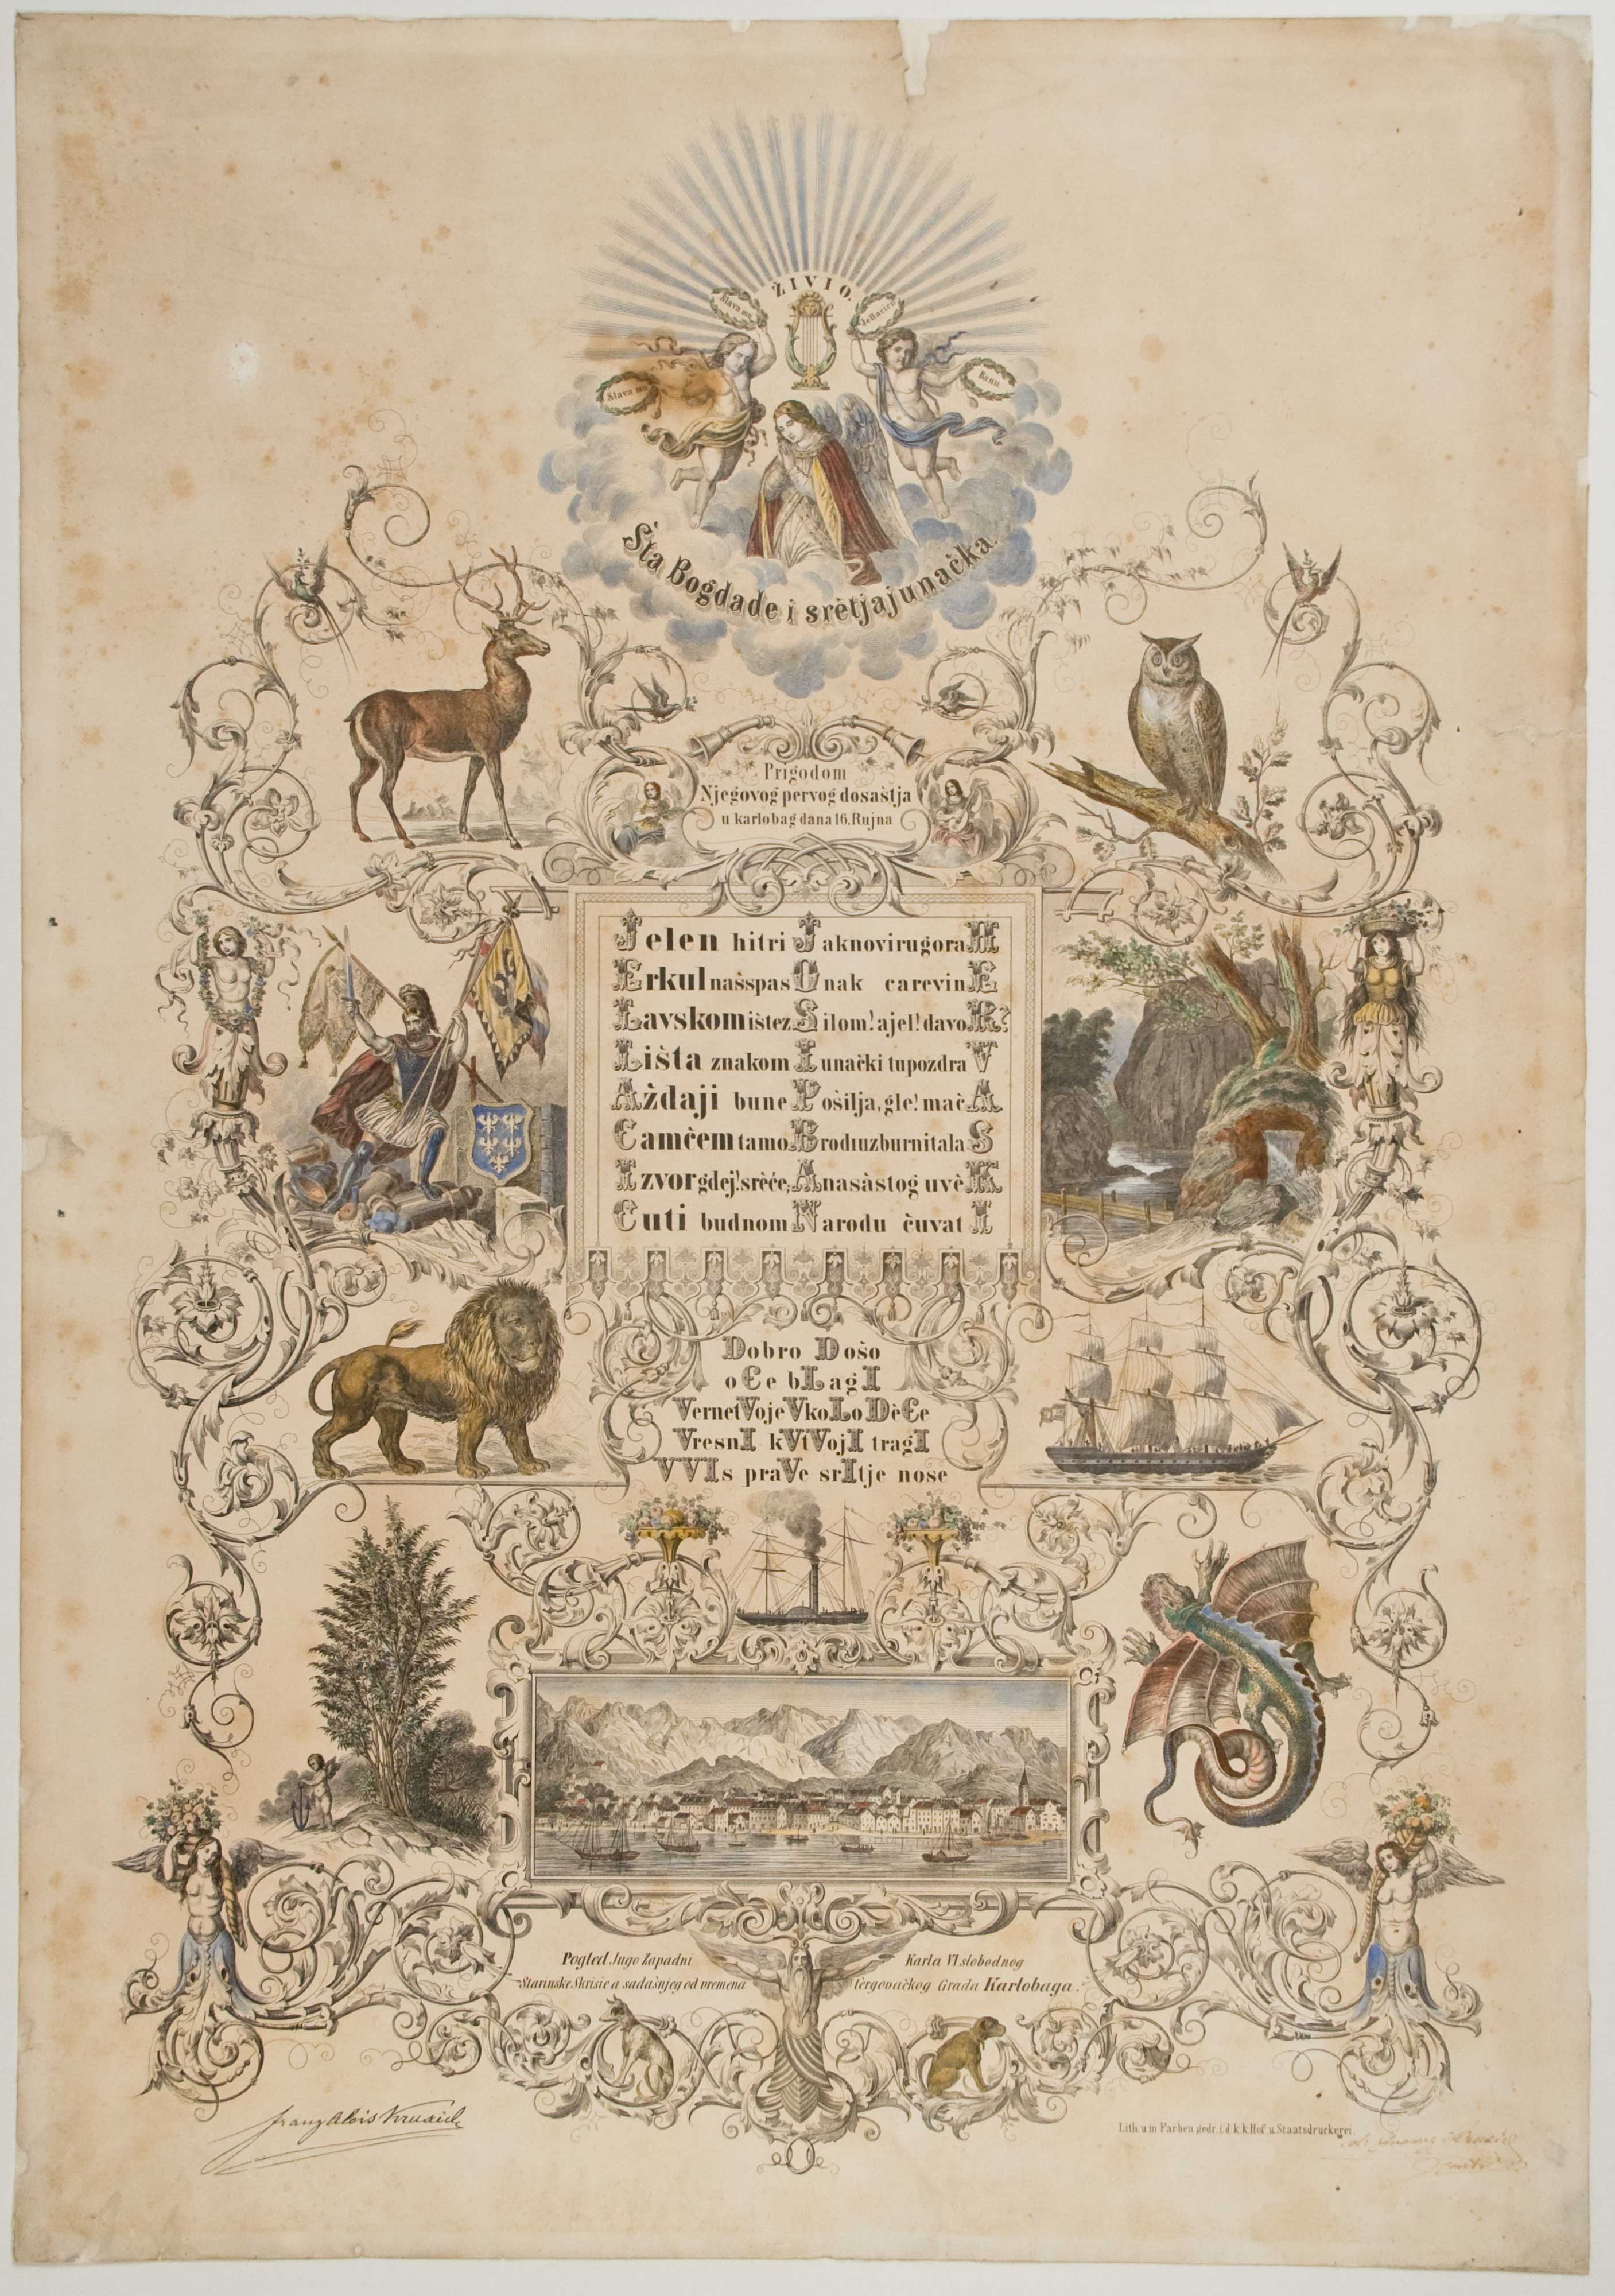 ŽIVIO.
Slava mu
Jellačiću
Slava mu
Banu
Šta Bogdade i srètjajunačka.
Prigodom
Njegovog pervog dosaštja
u karlobag dana 16. Rujna
Jelen hitri JaknovirugoraH
Erkul našspas Onak carevinE
Lavskomištez Silom! ajel! davoR?
Lišta znakom Iunački tupozdraV
Aždaji bune Pošilja, gle! mačA
Camčem tamo Brodiuzburnitala S
Izvor gdej! srěće; Anasàstog uvèK
Cuti budnom Narodu čuvatI
Dobro Došo
oCe bLagI
VernetVoje VkoLo DèCe
VresnI kVtVojI tragI
VVIs praVe srItje nose
Pogled Jugo Zapadni Karla VI slobodnog
Starinske Skrisie a sadašnjeg od vremena Tèrgovačkog Grada Karlobaga.
Franz Alois Krusich
Lith. u. in Farben gedr. i. d. k. k. Hof u. Staatsdruckerei.